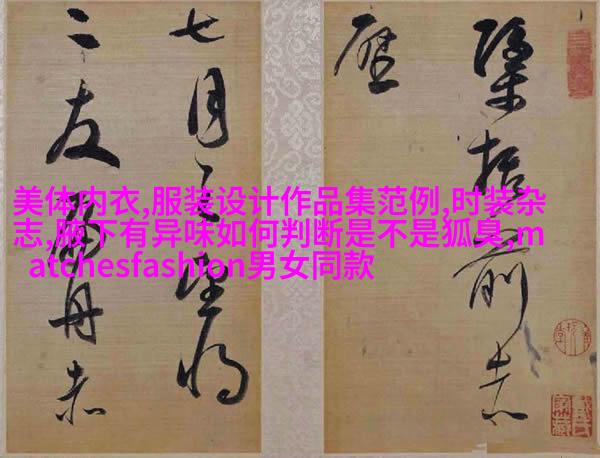 美体内衣,服装设计作品集范例,时装杂
志,腋下有异味如何判断是不是狐臭,m
atchesfashion男女同款
括前赤
壁
七月之望將
二友扁舟赤